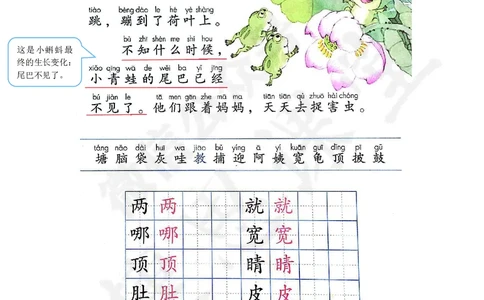 tiào bèng dào le hé yè shàng
跳，蹦到了荷叶上。
bù zhī shén me shí hou
不知什么时候，
这是小蝌蚪最
终的生长变化：
尾巴不见了。
xiǎo qīng wā de wěi ba yǐ jīng
小青蛙的尾巴已经
bú jiàn le tā men gēn zhe mā ma tiān tiān qù zhuō hài chóng
不见了。他们跟着妈妈，天天去捉害虫。
táng nǎo dài huī wā jiāo bǔ yíng ā yí kuān guī dǐng pī gǔ
塘脑袋灰哇教捕迎阿姨宽龟顶披鼓
两两 就就
哪哪 宽宽
顶顶 睛睛
肚肚 皮皮